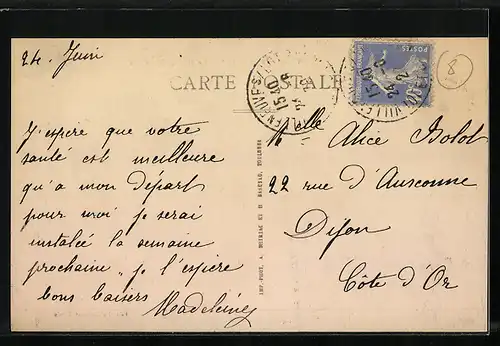 24 Juin
CARTE POSTALE
8
J'espère que votre
santé est meilleure
qu'a mon départ
pour moi je serai
instalée la semaine
prochaine, je l'espère
bons baisers
Madeleine
Mlle Alice Bolot
22 rue d'Auxonne
Dijon
Côte d'Or
POSTES
15 40
24